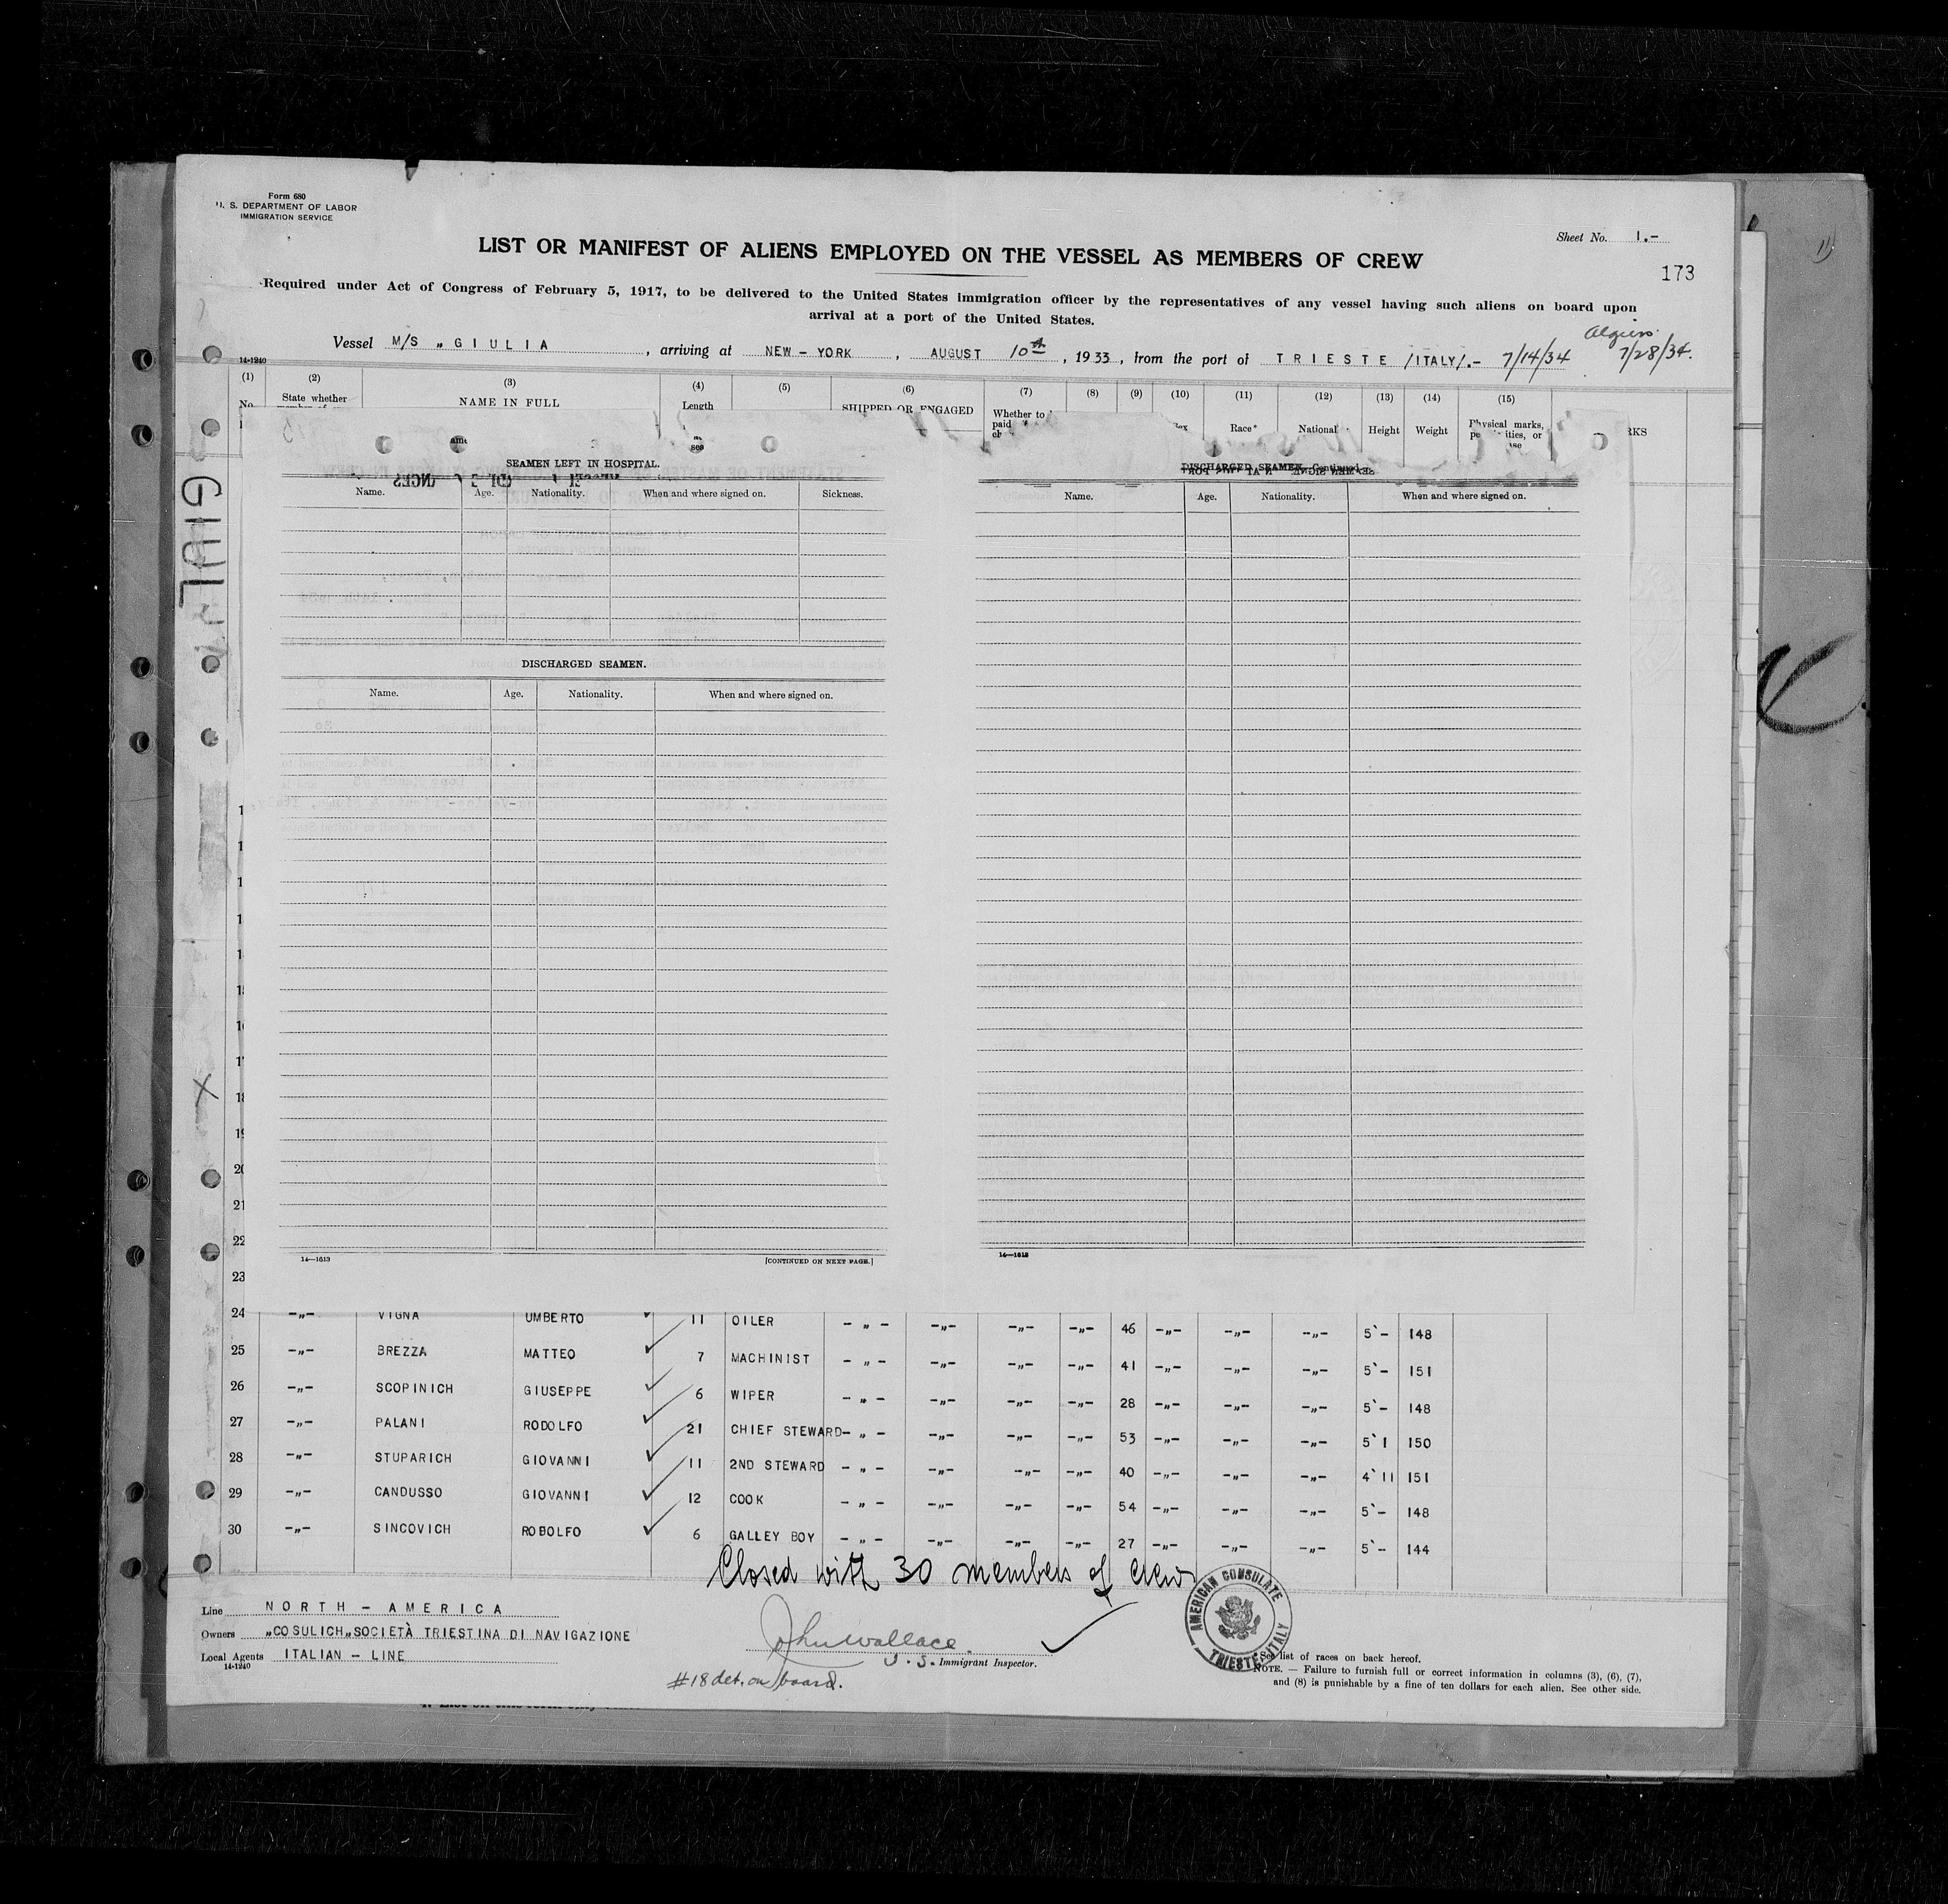 Form 680
U. S. DEPARTMENT OF LABOR
IMMIGRATION SERVICE
Sheet No. 1.-
LIST OR MANIFEST OF ALIENS EMPLOYED ON THE VESSEL AS MEMBERS OF CREW
173
Required under Act of Congress of February 5, 1917, to be delivered to the United States immigration officer by the representatives of any vessel having such aliens on board upon
arrival at a port of the United States.
Algiers
Vessel M/S „GIULIA , arriving at NEW-YORK , AUGUST 10th , 1933 , from the port of TRIESTE /ITALY/.- 7/14/34 7/28/34.
14-1240
(1) (2) (3) (4) (5) (6) (7) (8) (9) (10) (11) (12) (13) (14) (15)
No. State whether NAME IN FULL Length SHIPPED OR ENGAGED Whether to Race* National Height Weight Physical marks,
paid
GIULIA
SEAMEN LEFT IN HOSPITAL. DISCHARGED SEAMEN—Continued
Name. Age. Nationality. When and where signed on. Sickness. Name. Age. Nationality. When and where signed on.
DISCHARGED SEAMEN.
Name. Age. Nationality. When and where signed on.
18
21
22
14—1613 [CONTINUED ON NEXT PAGE.] 14—1613
23
24 -„- VIGNA UMBERTO 11 OILER - „ - -„- -„- -„- 46 -„- -„- -„- 5`- 148
25 -„- BREZZA MATTEO 7 MACHINIST - „ - -„- -„- -„- 41 -„- -„- -„- 5`- 151
26 -„- SCOPINICH GIUSEPPE 6 WIPER - „ - -„- -„- -„- 28 -„- -„- -„- 5`- 148
27 -„- PALANI RODOLFO 21 CHIEF STEWARD- „ - -„- -„- -„- 53 -„- -„- -„- 5`1 150
28 -„- STUPARICH GIOVANNI 11 2ND STEWARD - „ - -„- -„- -„- 40 -„- -„- -„- 4`11 151
29 -„- CANDUSSO GIOVANNI 12 COOK - „ - -„- -„- -„- 54 -„- -„- -„- 5`- 148
30 -„- SINCOVICH RODOLFO 6 GALLEY BOY - „ - -„- -„- -„- 27 -„- -„- -„- 5`- 144
Closed with 30 members of crew
AMERICAN CONSULATE
TRIESTE, ITALY
Line NORTH - AMERICA
Owners „COSULICH„SOCIETÀ TRIESTINA DI NAVIGAZIONE
Local Agents ITALIAN - LINE
14-1240
John Wallace.
U. S. Immigrant Inspector.
#18 det. on board.
See list of races on back hereof.
NOTE. — Failure to furnish full or correct information in columns (3), (6), (7),
and (8) is punishable by a fine of ten dollars for each alien. See other side.